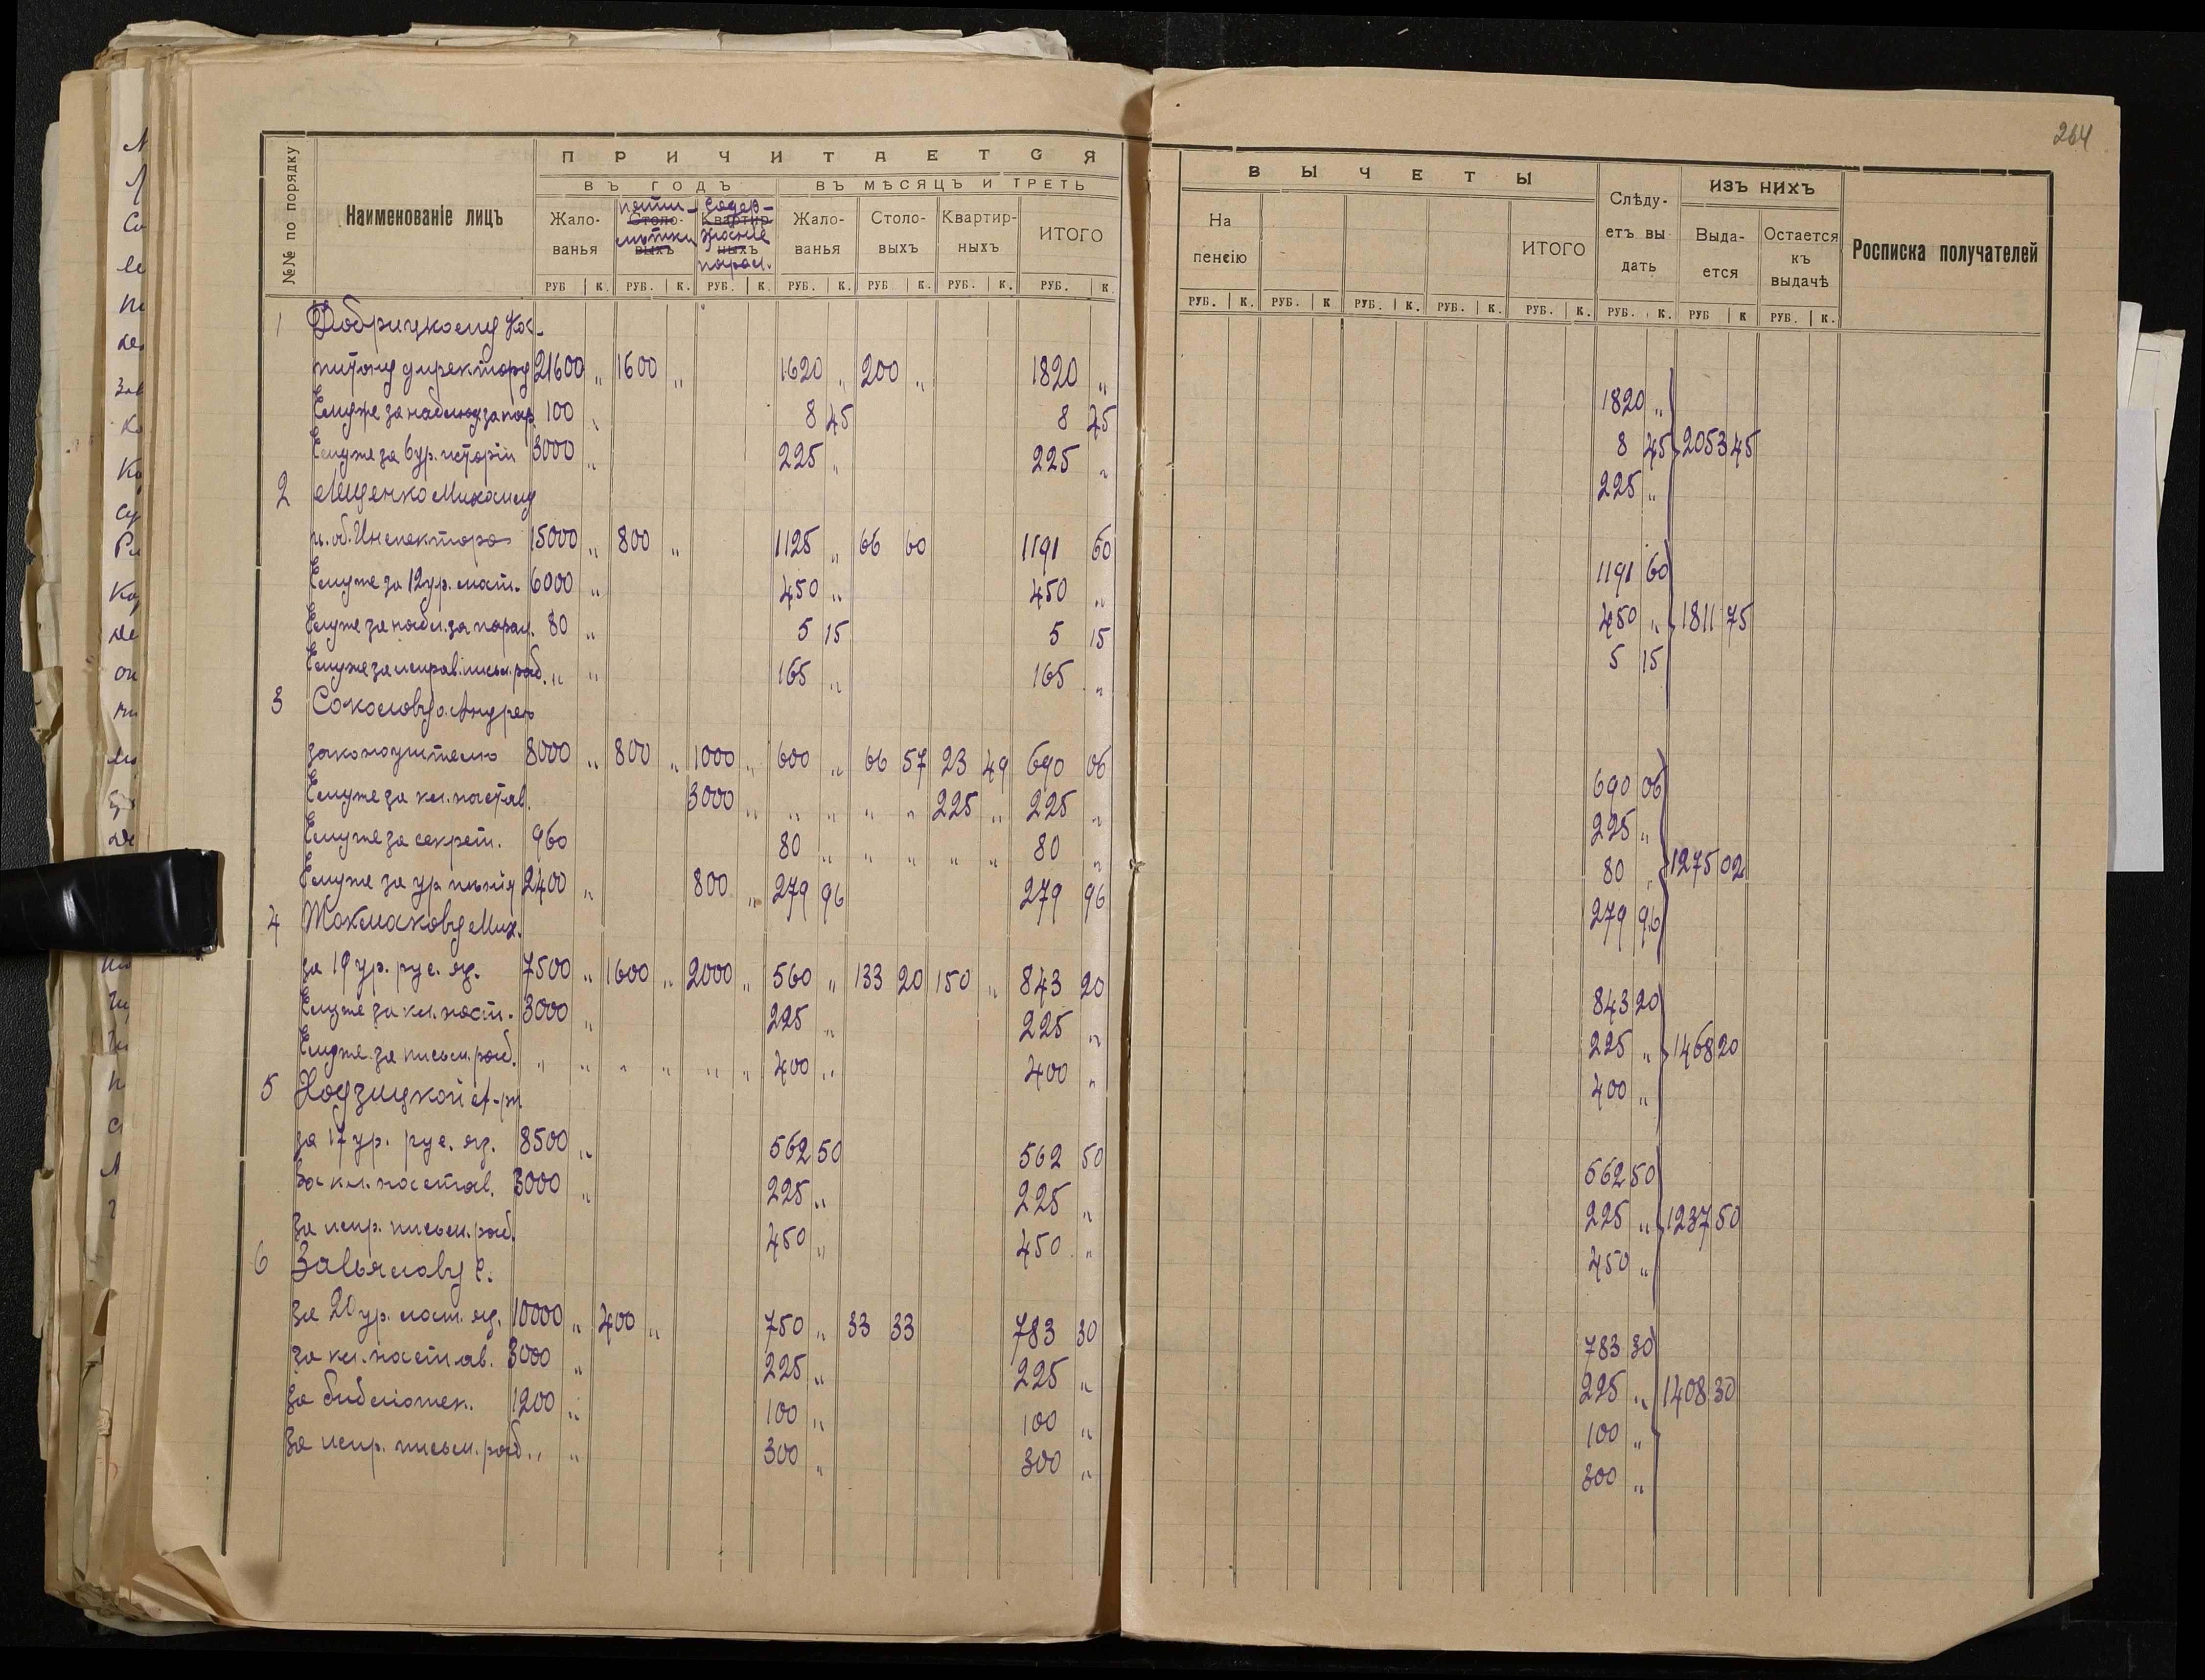 264
ПРИЧИТАЕТСЯ
ВЪ ГОДЪ ВЪ МѢСЯЦЪ И ТРЕТЬ
№№ по порядку Наименованіе лицъ Жало-ванья Столо-выхъ Квартир-ныхъ Жало-ванья Столо-выхъ Квартир-ныхъ ИТОГО
пяти-лѣтки Содер-жаніе парал.
РУБ К. РУБ. К. РУБ. К. РУБ. К. РУБ. К. РУБ. К. РУБ. К.
ВЫЧЕТЫ Слѣду-етъ вы дать ИЗЪ НИХЪ Росписка получателей
На пенсію ИТОГО Выда-ется Остается къ выдачѣ
РУБ. К. РУБ. К РУБ. К. РУБ. К. РУБ. К. РУБ. К. РУБ К РУБ. К.
1 Добрицкому Ка-
питону директору 21600 „ 1600 „ 1620 „ 200 „ 1820 „ 1820 „
Ему же за наблюд. за пар. 100 „ 8 45 8 45 8 45 2053 45
Ему же за 6 ур. исторіи 3000 „ 225 „ 225 „ 225 „
2 Лещенко Михаилу
и. об. Инспектора 15000 „ 800 „ 1125 „ 66 60 1191 60 1191 60
Ему же за 12 ур. мат. 6000 „ 450 „ 450 „ 450 „ 1811 75
Ему же за набл. за парал. 80 „ 5 15 5 15 5 15
Ему же за исправ. письм. раб. „ „ 165 „ 165 „
3 Соколову о. Андрею
законоучителю 8000 „ 800 „ 1000 „ 600 „ 66 57 23 49 690 06 690 06
Ему же за кл. настав. 3000 „ „ „ „ „ 225 „ 225 „ 225 „
Ему же за секрет. 960 80 „ „ „ „ „ 80 „ 80 „ 1275 02
Ему же за ур. пѣнія 2400 „ 800 „ 279 96 279 96 279 96
4 Токмакову Мих.
за 19 ур. рус. яз. 7500 „ 1600 „ 2000 „ 560 „ 133 20 150 „ 843 20 843 20
Ему же за кл. наст. 3000 „ 225 „ 225 „ 225 „ 1468 20
Ему же за письм. раб. „ „ „ „ „ „ 400 „ 400 „ 400 „
5
за 17 ур. рус. яз. 8500 „ 562 50 562 50 562 50
За кл. настав. 3000 „ 225 „ 225 „ 225 „ 1237 50
За испр. письм. раб. 450 „ 450 „ 450 „
6 Завьялову С.
За 20 ур. лат. яз. 10000 „ 400 „ 750 „ 33 33 783 30 783 30
За кл. настав. 3000 „ 225 „ 225 „ 225 „ 1408 30
За библіотек. 1200 „ 100 „ 100 „ 100 „
За испр. письм. раб. „ „ 300 „ 300 „ 300 „